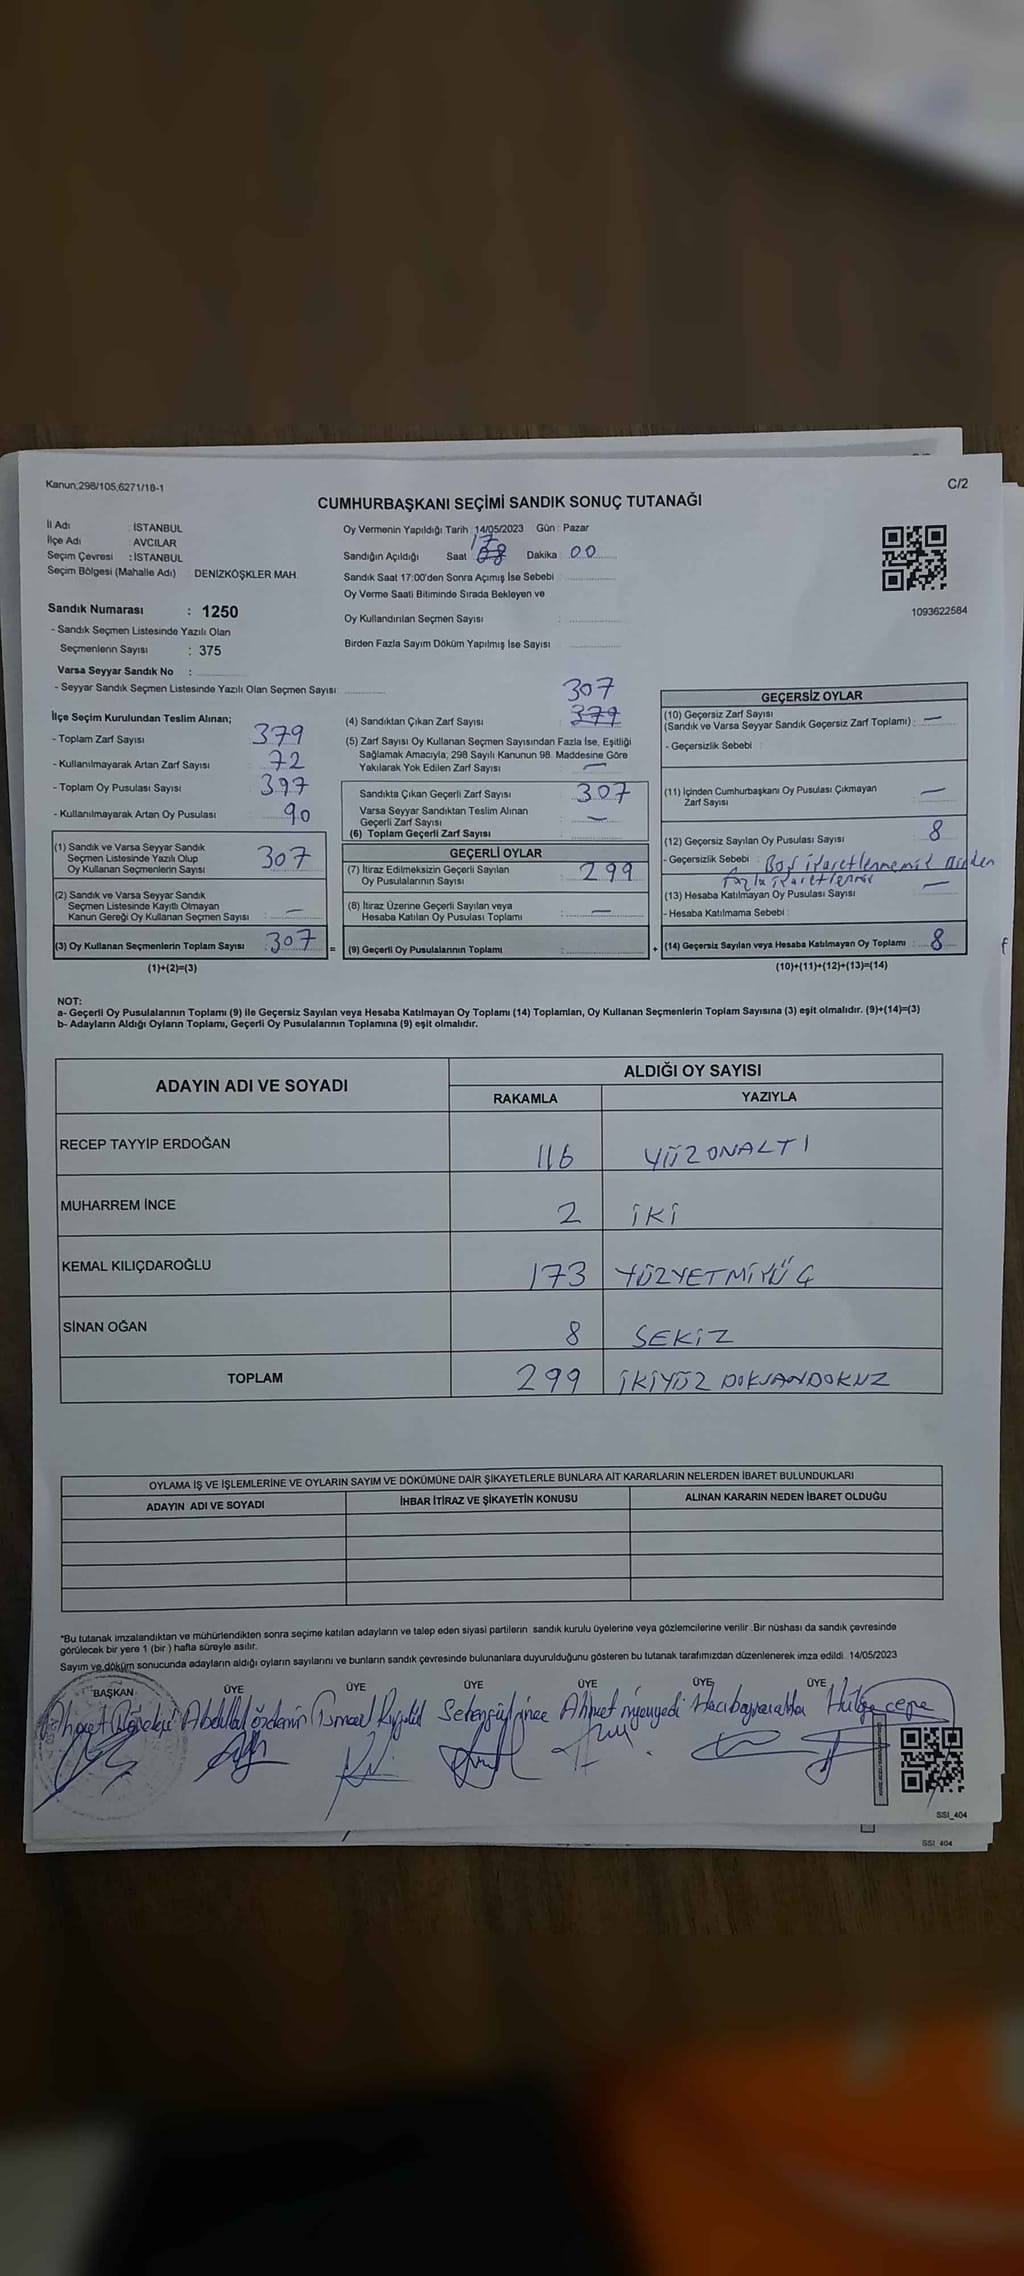 Kanun;298/105;6271/18-1
C/2
CUMHURBAŞKANI SEÇİMİ SANDIK SONUÇ TUTANAĞI
İl Adı : İSTANBUL
İlçe Adı : AVCILAR
Seçim Çevresi : İSTANBUL
Seçim Bölgesi (Mahalle Adı) : DENİZKÖŞKLER MAH.
Oy Vermenin Yapıldığı Tarih : 14/05/2023 Gün : Pazar
Sandığın Açıldığı Saat 17 08 Dakika : 00
Sandık Saat 17:00'den Sonra Açımış İse Sebebi :
Oy Verme Saati Bitiminde Sırada Bekleyen ve
Oy Kullandırılan Seçmen Sayısı :
Birden Fazla Sayım Döküm Yapılmış İse Sayısı
1093622584
Sandık Numarası : 1250
- Sandık Seçmen Listesinde Yazılı Olan
Seçmenlerin Sayısı : 375
Varsa Seyyar Sandık No :
- Seyyar Sandık Seçmen Listesinde Yazılı Olan Seçmen Sayısı :
İlçe Seçim Kurulundan Teslim Alınan;
- Toplam Zarf Sayısı 379
- Kullanılmayarak Artan Zarf Sayısı 72
- Toplam Oy Pusulası Sayısı 397
- Kullanılmayarak Artan Oy Pusulası 90
(1) Sandık ve Varsa Seyyar Sandık
Seçmen Listesinde Yazılı Olup
Oy Kullanan Seçmenlerin Sayısı 307
(2) Sandık ve Varsa Seyyar Sandık
Seçmen Listesinde Kayıtlı Olmayan
Kanun Gereği Oy Kullanan Seçmen Sayısı : —
(3) Oy Kullanan Seçmenlerin Toplam Sayısı : 307 =
(1)+(2)=(3)
307
(4) Sandıktan Çıkan Zarf Sayısı 379
(5) Zarf Sayısı Oy Kullanan Seçmen Sayısından Fazla İse, Eşitliği
Sağlamak Amacıyla, 298 Sayılı Kanunun 98. Maddesine Göre
Yakılarak Yok Edilen Zarf Sayısı —
Sandıkta Çıkan Geçerli Zarf Sayısı : 307
Varsa Seyyar Sandıktan Teslim Alınan
Geçerli Zarf Sayısı : —
(6) Toplam Geçerli Zarf Sayısı :
GEÇERLİ OYLAR
(7) İtiraz Edilmeksizin Geçerli Sayılan
Oy Pusulalarının Sayısı : 299
(8) İtiraz Üzerine Geçerli Sayılan veya
Hesaba Katılan Oy Pusulası Toplamı : —
(9) Geçerli Oy Pusulalarının Toplamı : +
GEÇERSİZ OYLAR
(10) Geçersiz Zarf Sayısı
(Sandık ve Varsa Seyyar Sandık Geçersiz Zarf Toplamı) : —
- Geçersizlik Sebebi :
(11) İçinden Cumhurbaşkanı Oy Pusulası Çıkmayan
Zarf Sayısı —
(12) Geçersiz Sayılan Oy Pusulası Sayısı 8
- Geçersizlik Sebebi : Boş işaretlenmemiş Birden
fazla işaretlenmiş
(13) Hesaba Katılmayan Oy Pusulası Sayısı —
- Hesaba Katılmama Sebebi :
(14) Geçersiz Sayılan veya Hesaba Katılmayan Oy Toplamı : 8
(10)+(11)+(12)+(13)=(14)
NOT:
a- Geçerli Oy Pusulalarının Toplamı (9) ile Geçersiz Sayılan veya Hesaba Katılmayan Oy Toplamı (14) Toplamları, Oy Kullanan Seçmenlerin Toplam Sayısına (3) eşit olmalıdır. (9)+(14)=(3)
b- Adayların Aldığı Oyların Toplamı, Geçerli Oy Pusulalarının Toplamına (9) eşit olmalıdır.
ADAYIN ADI VE SOYADI
ALDIĞI OY SAYISI
RAKAMLA YAZIYLA
RECEP TAYYİP ERDOĞAN 116 YÜZONALTI
MUHARREM İNCE 2 İKİ
KEMAL KILIÇDAROĞLU 173 YÜZYETMİYÜÇ
SİNAN OĞAN 8 SEKİZ
TOPLAM 299 İKİYÜZ DOKSANDOKUZ
OYLAMA İŞ VE İŞLEMLERİNE VE OYLARIN SAYIM VE DÖKÜMÜNE DAİR ŞİKAYETLERLE BUNLARA AİT KARARLARIN NELERDEN İBARET BULUNDUKLARI
ADAYIN ADI VE SOYADI İHBAR İTİRAZ VE ŞİKAYETİN KONUSU ALINAN KARARIN NEDEN İBARET OLDUĞU
*Bu tutanak imzalandıktan ve mühürlendikten sonra seçime katılan adayların ve talep eden siyasi partilerin sandık kurulu üyelerine veya gözlemcilerine verilir. Bir nüshası da sandık çevresinde
görülecek bir yere 1 (bir ) hafta süreyle asılır.
Sayım ve döküm sonucunda adayların aldığı oyların sayılarını ve bunların sandık çevresinde bulunanlara duyurulduğunu gösteren bu tutanak tarafımızdan düzenlenerek imza edildi. 14/05/2023
BAŞKAN ÜYE ÜYE ÜYE ÜYE ÜYE ÜYE
Abdullah Özdemir İsmail Ahmet Hülya
SSI_404
SSI_404